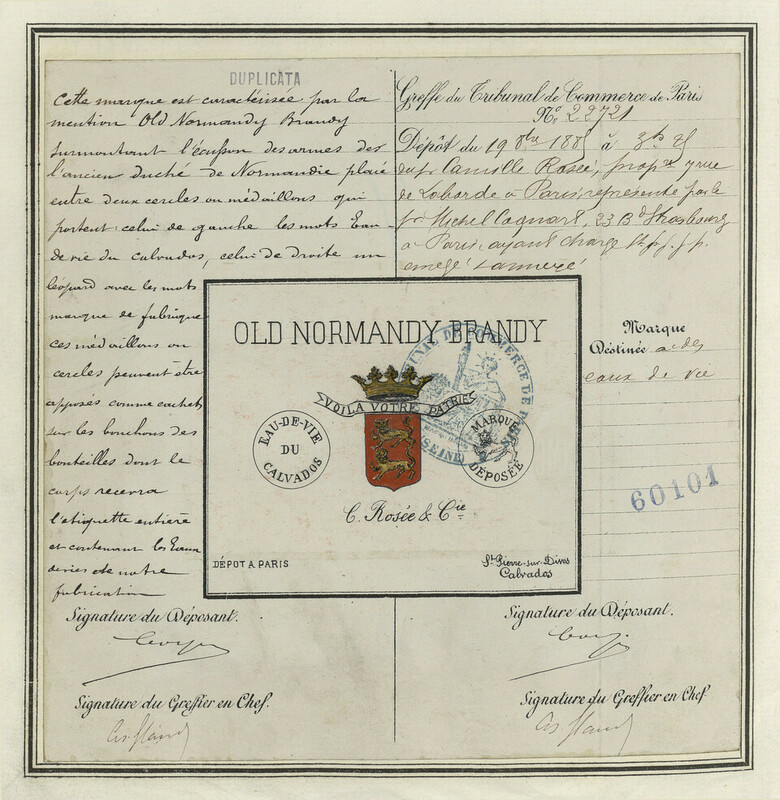 DUPLICATA
Cette marque est caractérisée par la
mention Old Normandy Brandy
surmontant l'écusson des armes de
l'ancien duché de Normandie placé
entre deux cercles ou médaillons qui
portent: celui de gauche les mots Eau-
de vie du Calvados, celui de droite un
léopard avec les mots
marque de fabrique
ces médaillons ou
cercles peuvent être
apposés comme cachets
sur les bouchons des
bouteilles dont le
corps recevra
l'étiquette entière
et contenant les Eaux
de vies de notre
fabrication
Signature du Déposant.
Signature du Greffier en Chef.
Greffe du Tribunal de Commerce de Paris
No. 22721
Dépôt du 19 8bre 188 à 3h
du sr Camille Rosée, propre rue
de Laborde à Paris, représenté par le
sr Michel Cagnart, 23 Bd Strasbourg
à Paris, ayant charge
Marque
Déstinée à des
eaux de vie
60101
OLD NORMANDY BRANDY
VOILA VOTRE PATRIE
EAU-DE-VIE
DU
CALVADOS
MARQUE
DÉPOSÉE
TRIBUNAL DE COMMERCE DE PARIS
(SEINE)
C. Rosée & Cie
DÉPOT A PARIS
St Pierre-sur-Dives
Calvados
Signature du Déposant.
Signature du Greffier en Chef